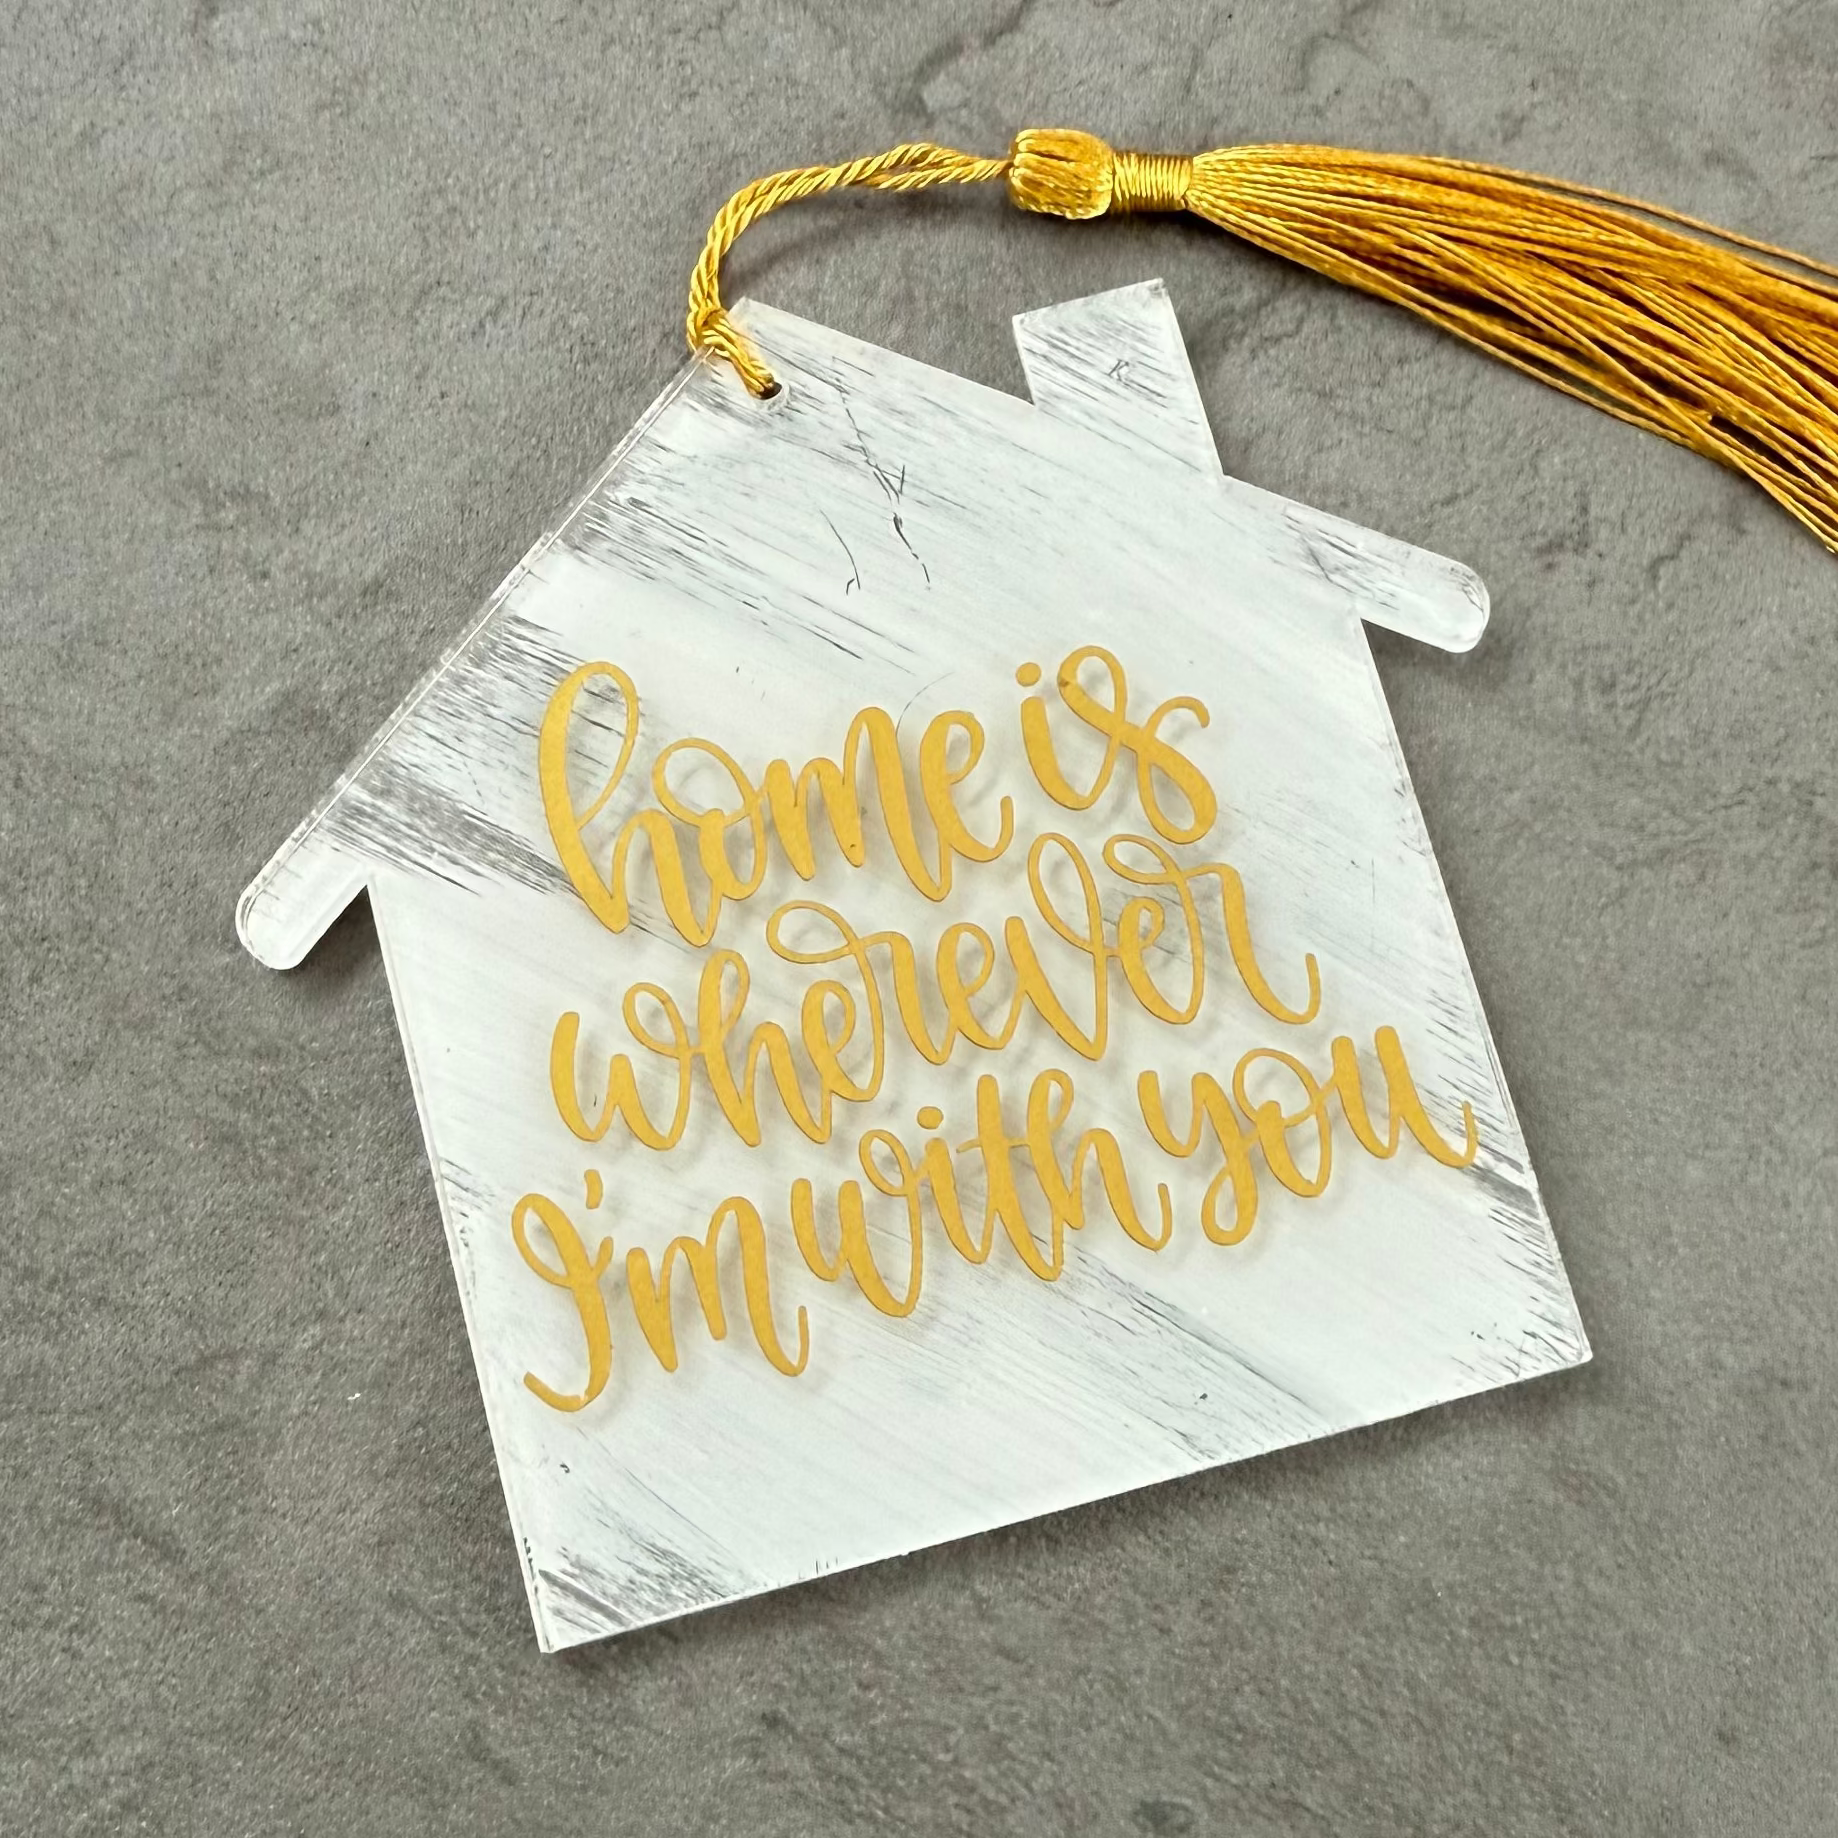 home is
wherever
I'm with you